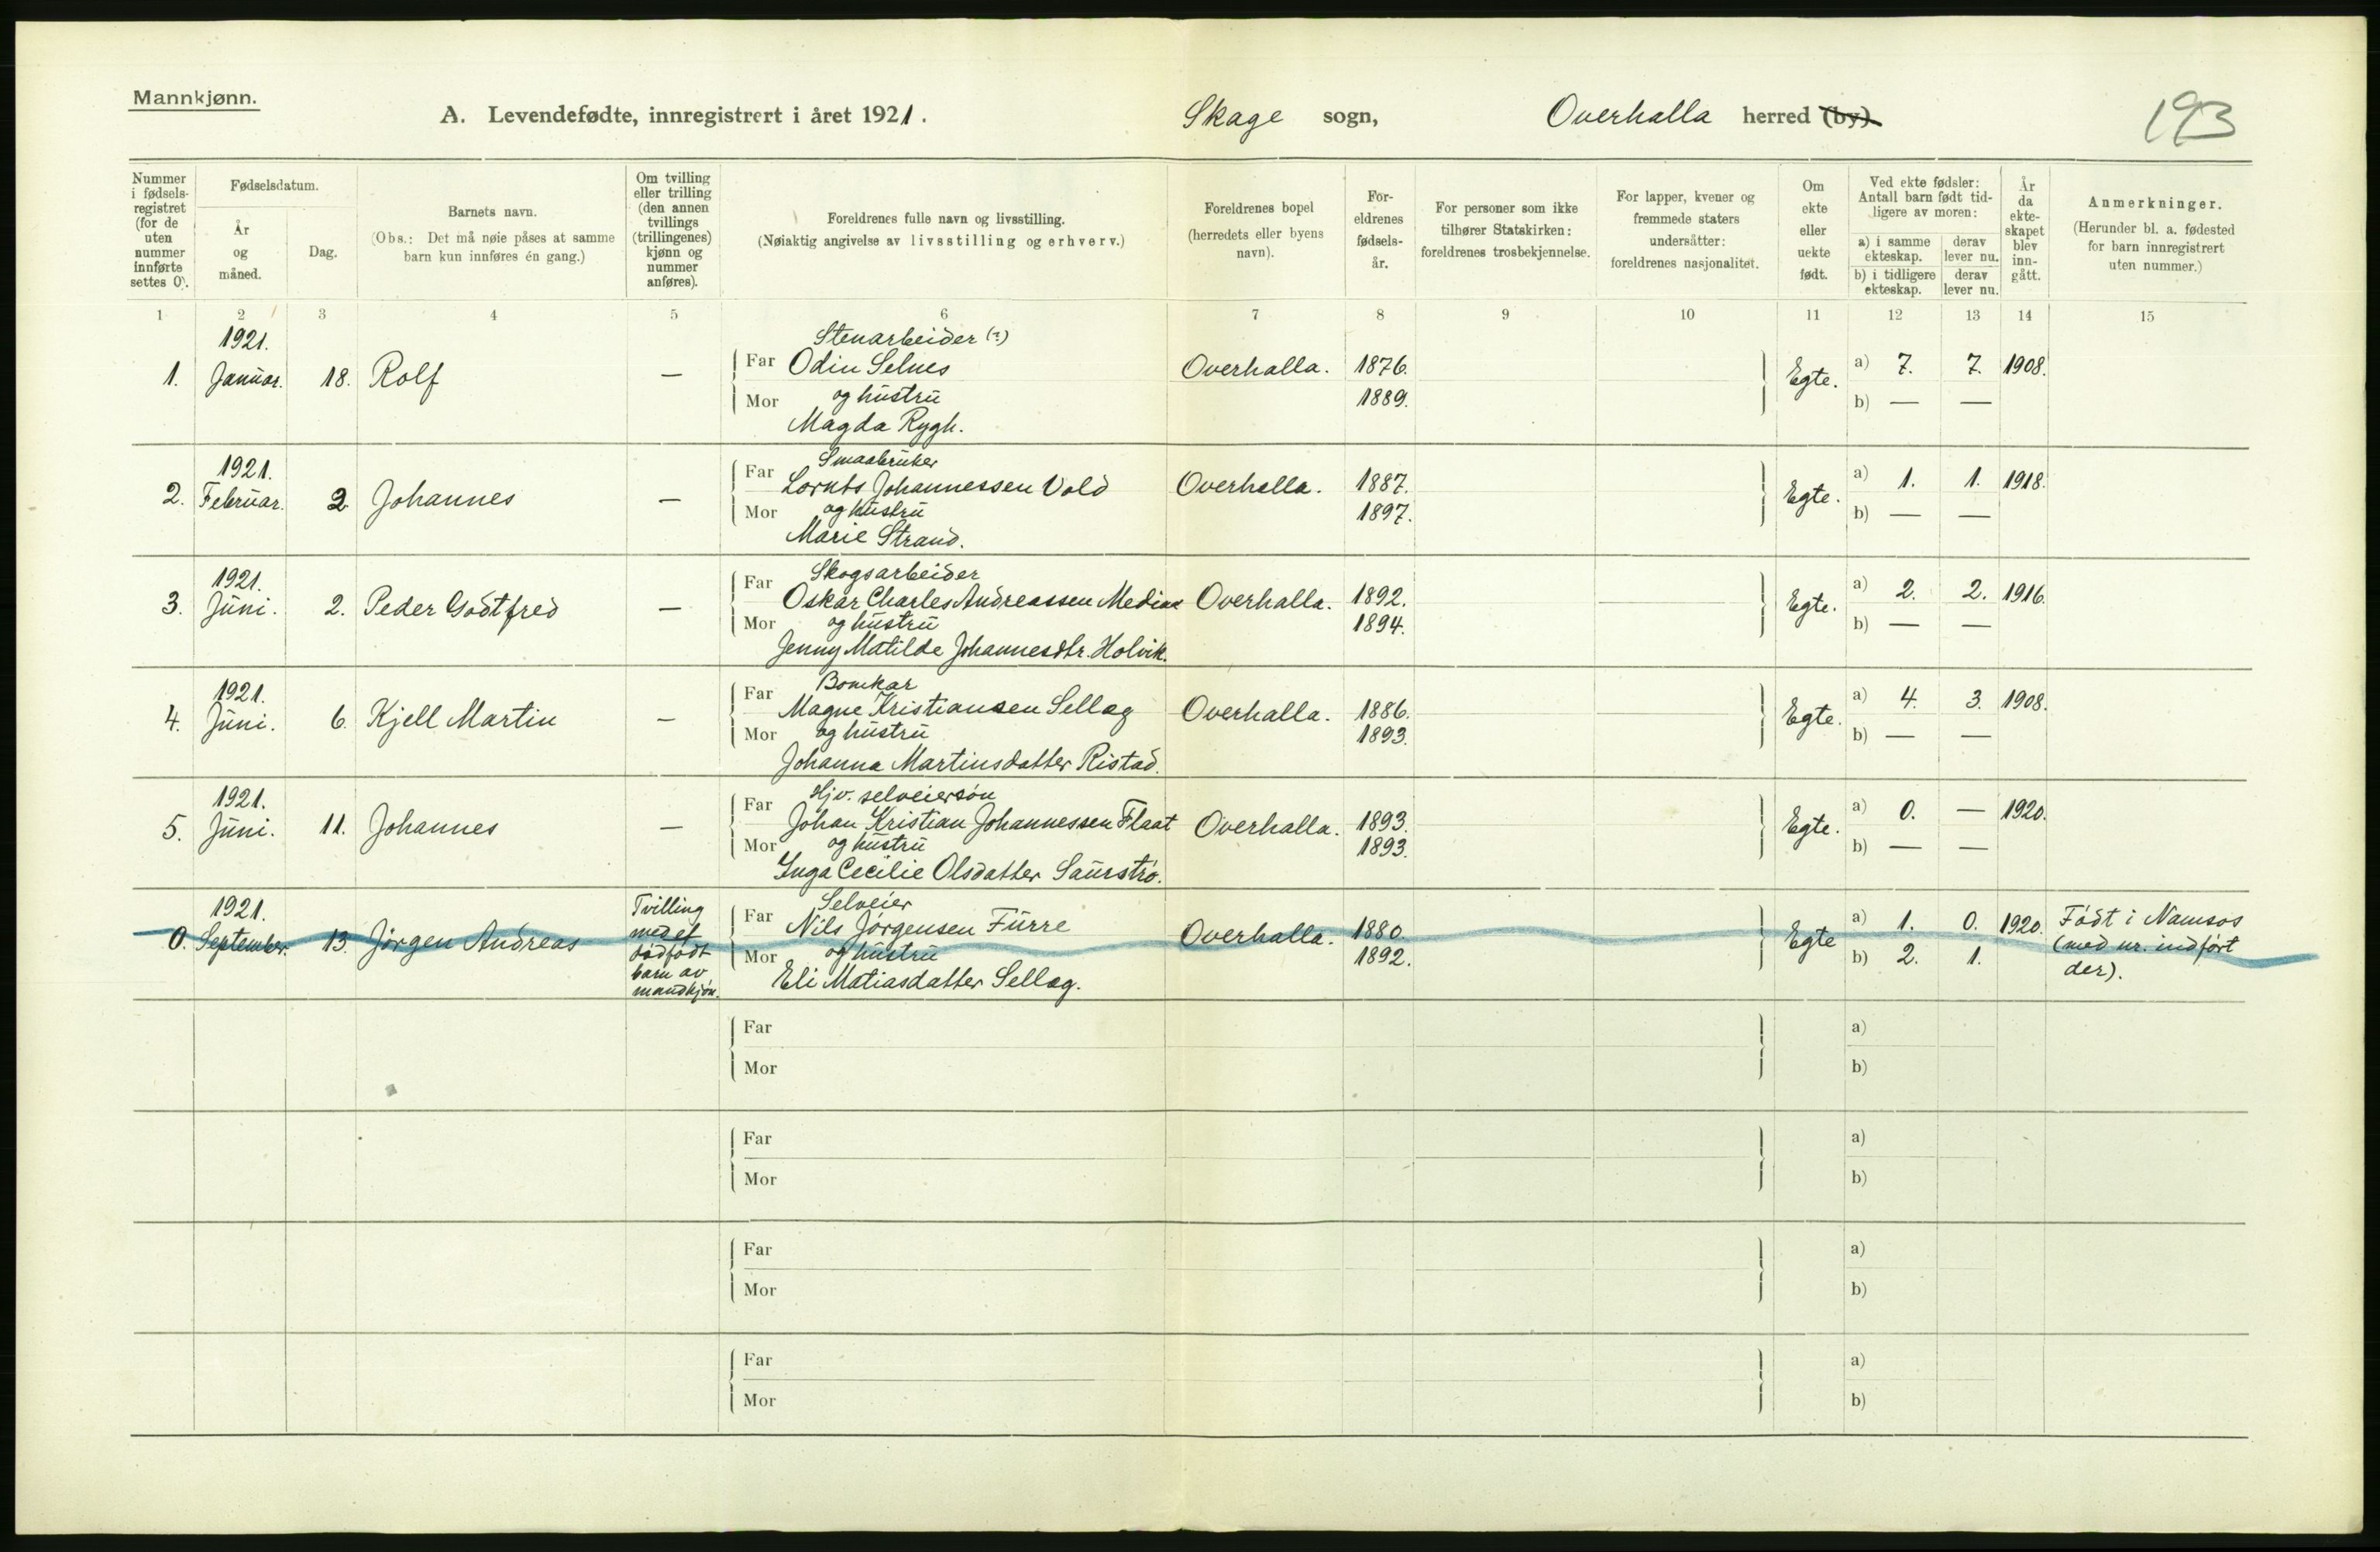 Mannkjønn.
A. Levendefødte, innregistrert i året 1921. Skage sogn, Overhalla herred (by). 193
Nummer i fødsels- registret (for de uten nummer innførte settes 0).
Fødselsdatum.
År og måned.
Dag.
Barnets navn.
(Obs.: Det må nøie påses at samme barn kun innføres én gang.)
Om tvilling eller trilling (den annen tvillings (trillingenes) kjønn og nummer anføres).
Foreldrenes fulle navn og livsstilling.
(Nøiaktig angivelse av livsstilling og erhverv.)
Foreldrenes bopel (herredets eller byens navn).
For- eldrenes fødsels- år.
For personer som ikke tilhører Statskirken: foreldrenes trosbekjennelse.
For lapper, kvener og fremmede staters undersåtter: foreldrenes nasjonalitet.
Om ekte eller uekte født.
Ved ekte fødsler: Antall barn født tid- ligere av moren:
a) i samme ekteskap. derav lever nu.
b) i tidligere ekteskap. derav lever nu.
År da ekte- skapet blev inn- gått.
Anmerkninger.
(Herunder bl. a. fødested for barn innregistrert uten nummer.)
1 2 3 4 5 6 7 8 9 10 11 12 13 14 15
1921. Stenarbeider (?)
1. Januar. 18. Rolf — Far Odin Selnes Overhalla. 1876. Egte. a) 7. 7. 1908.
Mor og hustru 1889. b) — —
Magda Rygh.
1921. Smaabruker
2. Februar. 2. Johannes — Far Lornts Johannessen Vold Overhalla. 1887. Egte. a) 1. 1. 1918.
Mor og hustru 1897. b) — —
Marie Strand.
1921. Skogsarbeider
3. Juni. 2. Peder Godtfred — Far Oskar Charles Andreassen Mediaa Overhalla. 1892. Egte. a) 2. 2. 1916.
Mor og hustru 1894. b) — —
Jenny Matilde Johannesdtr. Holvik.
1921. Bomkar
4. Juni. 6. Kjell Martin — Far Magne Kristiansen Sellæg Overhalla. 1886. Egte. a) 4. 3. 1908.
Mor og hustru 1893. b) — —
Johanna Martinsdatter Ristad.
1921. Hjv. selveiersøn
5. Juni. 11. Johannes — Far Johan Kristian Johannessen Flaat Overhalla. 1893. Egte. a) 0. — 1920.
Mor og hustru 1893. b) — —
Inga Cecilie Olsdatter Saurstrø.
1921. Tvilling med et dødfødt barn av mandkjøn. Selveier
0. September. 13. Jørgen Andreas Far Nils Jørgensen Furre Overhalla. 1880. Egte a) 1. 0. 1920. Født i Namsos
Mor og hustru 1892. b) 2. 1. (med nr. indført
Eli Matiasdatter Sellæg. der).
Far a)
Mor b)
Far a)
Mor b)
Far a)
Mor b)
Far a)
Mor b)